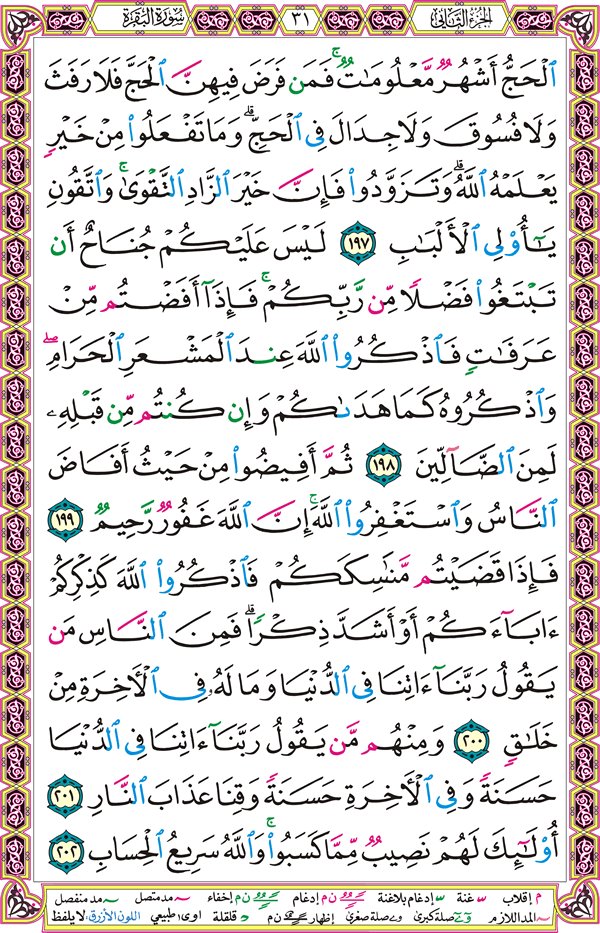 سُورَةُ البَقَرَة
٣١
الجزء الثاني
ٱلْحَجُّ أَشْهُرٌ مَّعْلُومَٰتٌ ۚ فَمَن فَرَضَ فِيهِنَّ ٱلْحَجَّ فَلَا رَفَثَ
وَلَا فُسُوقَ وَلَا جِدَالَ فِى ٱلْحَجِّ ۗ وَمَا تَفْعَلُوا۟ مِنْ خَيْرٍ
يَعْلَمْهُ ٱللَّهُ ۗ وَتَزَوَّدُوا۟ فَإِنَّ خَيْرَ ٱلزَّادِ ٱلتَّقْوَىٰ ۚ وَٱتَّقُونِ
يَٰٓأُو۟لِى ٱلْأَلْبَٰبِ ١٩٧ لَيْسَ عَلَيْكُمْ جُنَاحٌ أَن
تَبْتَغُوا۟ فَضْلًا مِّن رَّبِّكُمْ ۚ فَإِذَآ أَفَضْتُم مِّنْ
عَرَفَٰتٍ فَٱذْكُرُوا۟ ٱللَّهَ عِندَ ٱلْمَشْعَرِ ٱلْحَرَامِ ۖ
وَٱذْكُرُوهُ كَمَا هَدَىٰكُمْ وَإِن كُنتُم مِّن قَبْلِهِۦ
لَمِنَ ٱلضَّآلِّينَ ١٩٨ ثُمَّ أَفِيضُوا۟ مِنْ حَيْثُ أَفَاضَ
ٱلنَّاسُ وَٱسْتَغْفِرُوا۟ ٱللَّهَ ۚ إِنَّ ٱللَّهَ غَفُورٌ رَّحِيمٌ ١٩٩
فَإِذَا قَضَيْتُم مَّنَٰسِكَكُمْ فَٱذْكُرُوا۟ ٱللَّهَ كَذِكْرِكُمْ
ءَابَآءَكُمْ أَوْ أَشَدَّ ذِكْرًا ۗ فَمِنَ ٱلنَّاسِ مَن
يَقُولُ رَبَّنَآ ءَاتِنَا فِى ٱلدُّنْيَا وَمَا لَهُۥ فِى ٱلْءَاخِرَةِ مِنْ
خَلَٰقٍ ٢٠٠ وَمِنْهُم مَّن يَقُولُ رَبَّنَآ ءَاتِنَا فِى ٱلدُّنْيَا
حَسَنَةً وَفِى ٱلْءَاخِرَةِ حَسَنَةً وَقِنَا عَذَابَ ٱلنَّارِ ٢٠١
أُو۟لَٰٓئِكَ لَهُمْ نَصِيبٌ مِّمَّا كَسَبُوا۟ ۚ وَٱللَّهُ سَرِيعُ ٱلْحِسَابِ ٢٠٢
م إقلاب غنة إدغام بلاغنة ن م إدغام ن م إخفاء مد متصل مد منفصل
المد اللازم صلة كبرى صلة صغرى إظهار ن م قلقلة اوى طبيعي اللون الأزرق: لا يلفظ